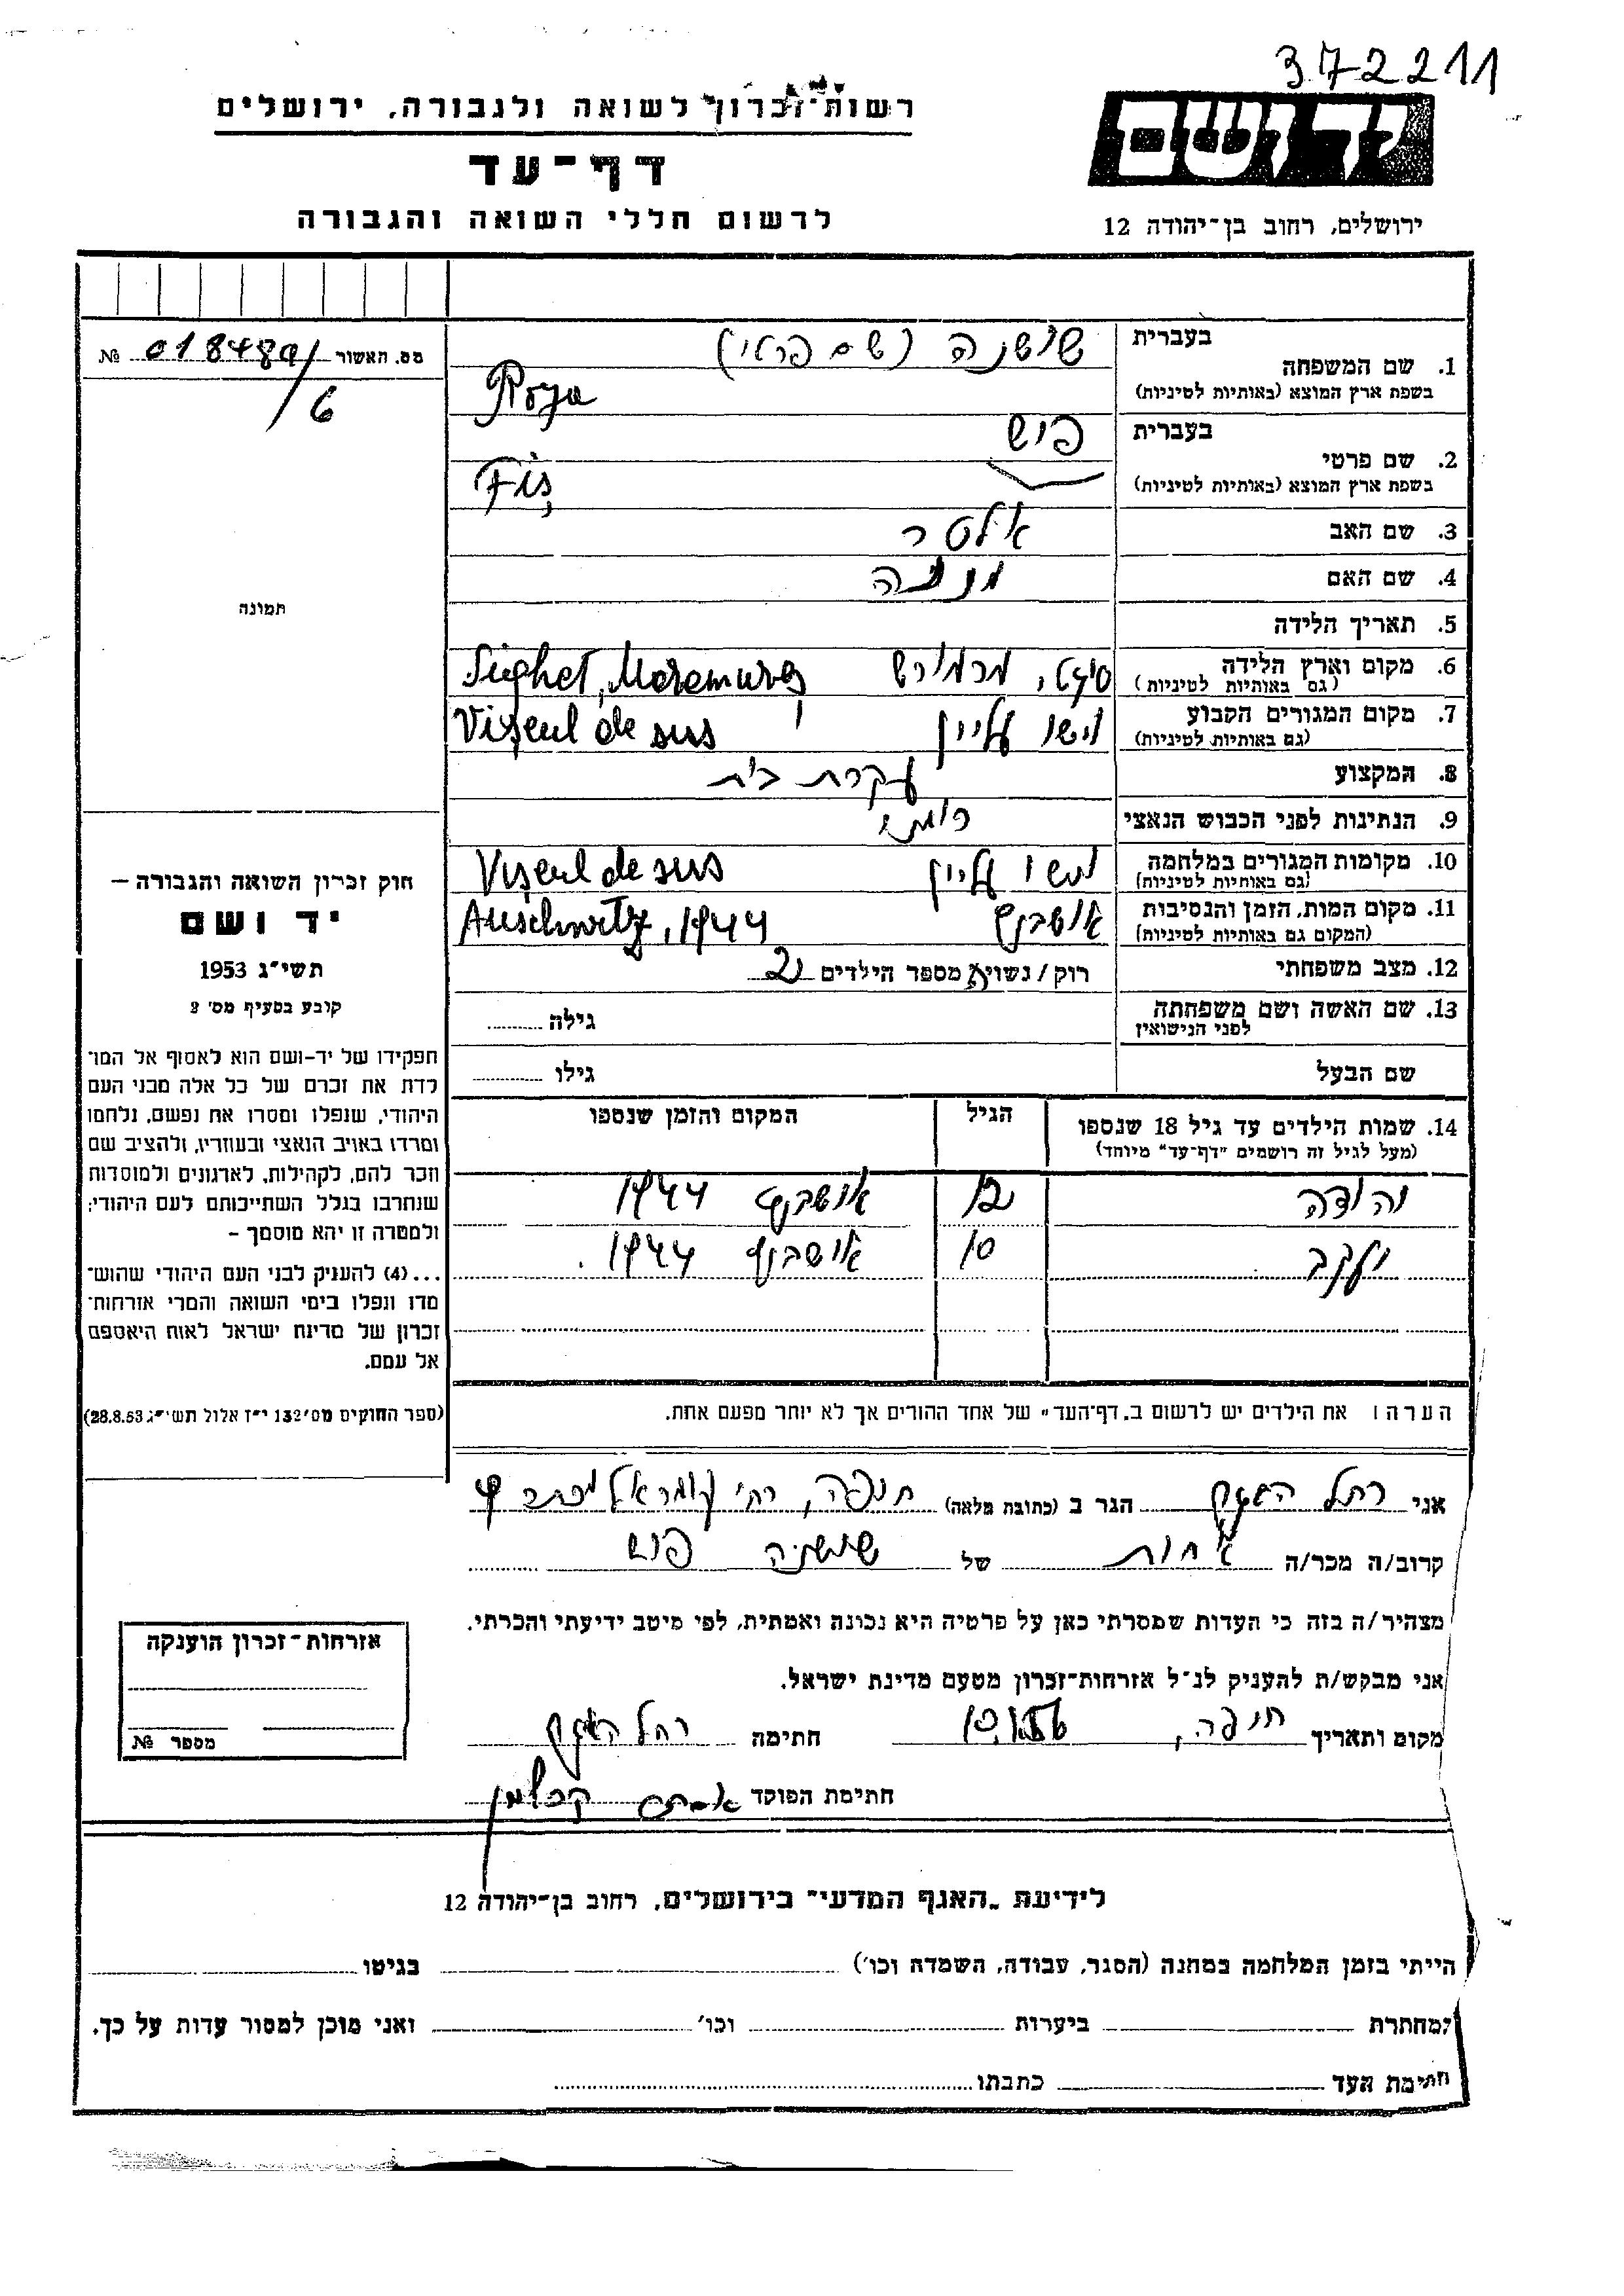 372211
רשות-זכרון לשואה ולגבורה, ירושלים
יד ושם
דף-עד
לרשום חללי השואה והגבורה
ירושלים, רחוב בן-יהודה 12
מס. האשור 018489/6 №
תמונה
1. שם המשפחה
בעברית שושנה (שם פרטי)
בשפת ארץ המוצא (באותיות לטיניות) Roza
2. שם פרטי
בעברית פיש
בשפת ארץ המוצא (באותיות לטיניות) Fiș
3. שם האב אלטר
4. שם האם
5. תאריך הלידה
6. מקום וארץ הלידה סיגט, מרמורש Sighet, Maramureș
(גם באותיות לטיניות)
7. מקום המגורים הקבוע וישו עליון Vișeul de sus
(גם באותיות לטיניות)
8. המקצוע עקרת בית
9. הנתינות לפני הכבוש הנאצי רומני
10. מקומות המגורים במלחמה וישו עליון Vișeul de sus
(גם באותיות לטיניות)
11. מקום המות, הזמן והנסיבות אושביץ Auschwitz, 1944
(המקום גם באותיות לטיניות)
12. מצב משפחתי רוק/נשויאה מספר הילדים 2
13. שם האשה ושם משפחתה גילה
לפני הנישואין
שם הבעל גילו
14. שמות הילדים עד גיל 18 שנספו הגיל המקום והזמן שנספו
(מעל לגיל זה רושמים "דף-עד" מיוחד)
יהודה 12 אושביץ 1944
יעקב 10 אושביץ 1944.
הערה: את הילדים יש לרשום ב"דף-העד" של אחד ההורים אך לא יותר מפעם אחת.
חוק זכרון השואה והגבורה —
יד ושם
תשי"ג 1953
קובע בסעיף מס' 2
תפקידו של יד-ושם הוא לאסוף אל המו־
לדת את זכרם של כל אלה מבני העם
היהודי, שנפלו ומסרו את נפשם, נלחמו
ומרדו באויב הנאצי ובעוזריו, ולהציב שם
וזכר להם, לקהילות, לארגונים ולמוסדות
שנחרבו בגלל השתייכותם לעם היהודי;
ולמטרה זו יהא מוסמך –
...(4) להעניק לבני העם היהודי שהוש־
מדו ונפלו בימי השואה והמרי אזרחות־
זכרון של מדינת ישראל לאות היאספם
אל עמם.
(ספר החוקים מס' 132 י"ז אלול תשי"ג 28.8.53)
אני רחל הגר ב (כתובת מלאה) חיפה, רח'
קרוב/ה מכר/ה אחות של שושנה פיש
מצהיר/ה בזה כי העדות שמסרתי כאן על פרטיה היא נכונה ואמתית, לפי מיטב ידיעתי והכרתי.
אני מבקש/ת להעניק לנ"ל אזרחות-זכרון מטעם מדינת ישראל.
מקום ותאריך חיפה, חתימה רחל
חתימת הפוקד
אזרחות-זכרון הוענקה
מספר №
לידיעת "האגף המדעי" בירושלים, רחוב בן-יהודה 12
הייתי בזמן המלחמה במחנה (הסגר, עבודה, השמדה וכו') בגיטו
במחתרת ביערות וכו' ואני מוכן למסור עדות על כך.
חתימת העד כתבתו